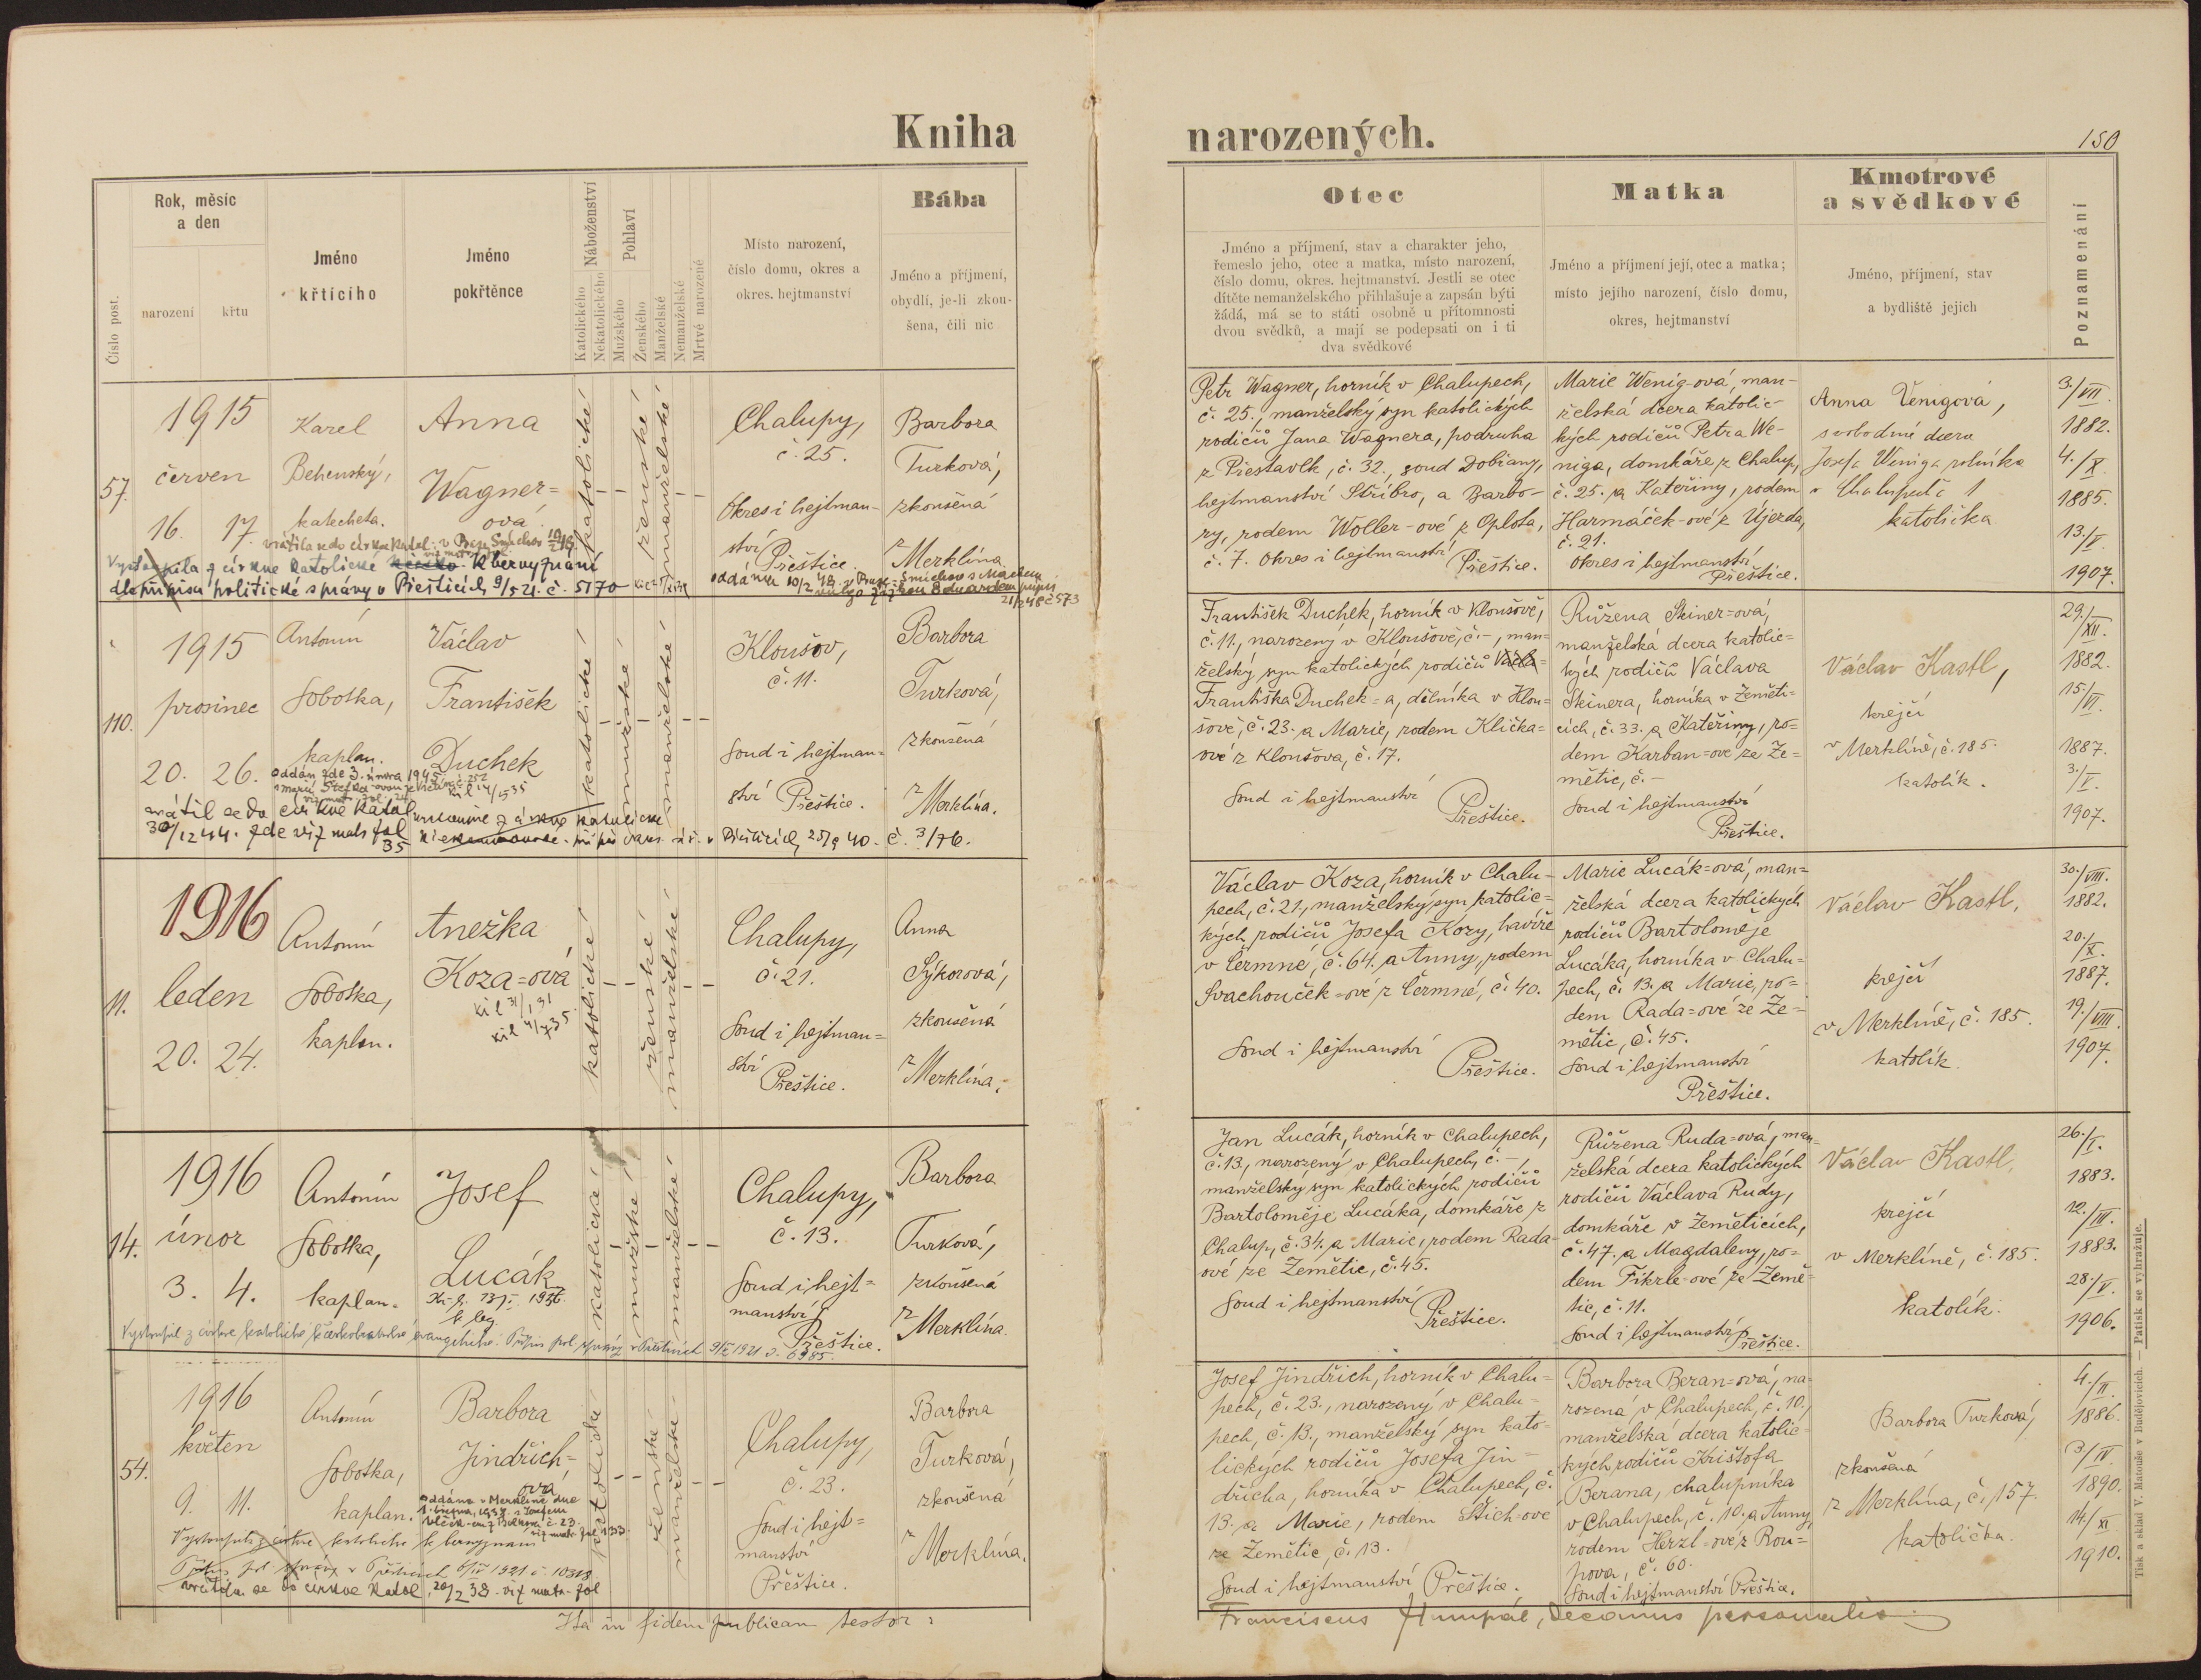 Kniha narozených.
150
Číslo post.
Rok, měsíc
a den
narození
křtu
Jméno
křtícího
Jméno
pokřtěnce
Náboženství
Katolického
Nekatolického
Pohlaví
Mužského
Ženského
Manželské
Nemanželské
Mrtvě narozené
Místo narození,
číslo domu, okres a
okres. hejtmanství
Bába
Jméno a příjmení,
obydlí, je-li zkou-
šena, čili nic
Otec
Jméno a příjmení, stav a charakter jeho,
řemeslo jeho, otec a matka, místo narození,
číslo domu, okres. hejtmanství. Jestli se otec
dítěte nemanželského přihlašuje a zapsán býti
žádá, má se to státi osobně u přítomnosti
dvou svědků, a mají se podepsati on i ti
dva svědkové
Matka
Jméno a příjmení její, otec a matka;
místo jejího narození, číslo domu,
okres, hejtmanství
Kmotrové
a svědkové
Jméno, příjmení, stav
a bydliště jejich
Poznamenání
57.
1915
červen
16. 17.
Karel
Behenský,
katecheta.
Anna
Wagner=
ová
katolické
ženské
manželské
Chalupy,
č. 25.
Okres i hejtman-
ství
Přeštice
Barbora
Turková,
zkoušená
z Merklína
vrátila se do církve katol. v Praze Smíchov
Vystoupila z církve katolické k bezvyznání
dle přípisu politické správy v Přešticích 9/5 21. č. 5170
oddána 10/2 48 v Praze - Smíchov s
21/2 48 č 573
Petr Wagner, horník v Chalupech,
č. 25., manželský syn katolických
rodičů Jana Wagnera, podruha
z Přestavlk, č. 32., soud Dobřany,
hejtmanství Stříbro, a Barbo-
ry, rodem Woller-ové z Oplota,
č. 7. Okres i hejtmanství
Přeštice.
Marie Wenig-ová, man-
želská dcera katolic-
kých rodičů Petra We-
niga, domkáře z Chalup,
č. 25. a Kateřiny, rodem
Harmáček-ové z Újezda,
č. 21.
Okres i hejtmanství
Přeštice.
Anna Venigová,
svobodná dcera
Josefa Weniga rolníka
v Chalupech č 1
katolička
3./VII.
1882.
4./X.
1885.
13./V.
1907.
110.
1915
prosinec
20. 26.
Antonín
Sobotka,
kaplan.
Václav
František
Duchek
katolické
mužské
manželské
Kloušov,
č. 11.
Soud i hejtman=
ství Přeštice.
Barbora
Turková,
zkoušená
z Merklína.
oddán zde 3. února 1945
vrátil se do církve katol
30/12 44. zde viz matr fol
35
z církve katolické
Přešticích 25/9 40. č. 3/76.
František Duchek, horník v Kloušově,
č. 11., narozený v Kloušově, č. -, man=
želský syn katolických rodičů Václa=
Františka Duchek=a, dělníka v Klou=
šově, č. 23. a Marie, rodem Klička=
ové z Kloušova, č. 17.
Soud i hejtmanství
Přeštice.
Růžena Skiner=ová,
manželská dcera katolic=
kých rodičů Václava
Skinera, horníka v Zeměti=
cích, č. 33. a Kateřiny, ro=
dem Karban=ové ze Ze=
mětic, č. -
Soud i hejtmanství
Přeštice.
Václav Kastl,
krejčí
v Merklíně, č. 185.
katolík.
29./XII.
1882.
15./VI.
1887.
3./V.
1907.
11.
1916
leden
20. 24.
Antonín
Sobotka,
kaplan.
Anežka
Koza=ová
katolické
ženské
manželské
Chalupy,
č. 21.
Soud i hejtman=
ství
Přeštice.
Anna
Sýkorová,
zkoušená
z Merklína.
Václav Koza, horník v Chalu-
pech, č. 21., manželský syn katolic=
kých rodičů Josefa Kozy, havíře
v Čermné, č. 64. a Anny, rodem
Svachouček=ové z Čermné, č. 40.
Soud i hejtmanství
Přeštice.
Marie Lucák=ová, man=
želská dcera katolických
rodičů Bartoloměje
Lucáka, horníka v Chalu=
pech, č. 13. a Marie, ro=
dem Rada=ové ze Ze=
mětic, č. 45.
Soud i hejtmanství
Přeštice.
Václav Kastl,
krejčí
v Merklíně, č. 185.
katolík.
30./VIII.
1882.
20./X.
1887.
19./VIII.
1907.
14.
1916
únor
3. 4.
Antonín
Sobotka,
kaplan.
Josef
Lucák
katolické
mužské
manželské
Chalupy,
č. 13.
Soud i hejt=
manství
Přeštice.
Barbora
Turková,
zkoušená
z Merklína.
Vystoupil z církve katolické k českobratrské evangelické. Přípis pol. správy v Přešticích 9/V 1921 č. 6985.
Jan Lucák, horník v Chalupech,
č. 13., narozený v Chalupech, č. -,
manželský syn katolických rodičů
Bartoloměje Lucáka, domkáře z
Chalup, č. 34. a Marie, rodem Rada-
ové ze Zemětic, č. 45.
Soud i hejtmanství
Přeštice.
Růžena Ruda=ová, man=
želská dcera katolických
rodičů Václava Rudy,
domkáře v Zeměticích,
č. 47. a Magdaleny, ro=
dem Fikrle-ové ze Země=
tic, č. 11.
Soud i hejtmanství
Přeštice.
Václav Kastl,
krejčí
v Merklíně, č. 185.
katolík.
26./I.
1883.
12./III.
1883.
28./V.
1906.
54.
1916
květen
9. 11.
Antonín
Sobotka,
kaplan.
Barbora
Jindřich=
ová
katolické
ženské
manželské
Chalupy,
č. 23.
Soud i hejt=
manství
Přeštice.
Barbora
Turková,
zkoušená
z Merklína.
oddána v Merklíně dne
Vystoupila z církve katolické k bezvyznání
Přípis pol. správy v Přešticích 1921 č. 10318
vrátila se do církve katol. 20/2 38 - viz matr. fol
Josef Jindřich, horník v Chalu=
pech, č. 23., narozený v Chalu-
pech, č. 13., manželský syn kato-
lických rodičů Josefa Jin=
dřicha, horníka v Chalupech, č.
13. a Marie, rodem Štich-ové
ze Zemětic, č. 13.
Soud i hejtmanství Přeštice.
Barbora Beran=ová, na-
rozená v Chalupech, č. 10.,
manželská dcera katolic-
kých rodičů Krištofa
Berana, chalupníka
v Chalupech, č. 10. a Anny,
rodem Herzl-ové z Rou=
pova, č. 60.
Soud i hejtmanství Přeštice.
Barbora Turková,
zkoušená
z Merklína, č. 157.
katolička.
4./II.
1886.
3/IV.
1890.
14./XI
1910.
Ita in fidem publicam testor:
Franciscus Humpál, Decanus personalis
Tisk a sklad V. Matouše v Budějovicích. — Patisk se vyhražuje.